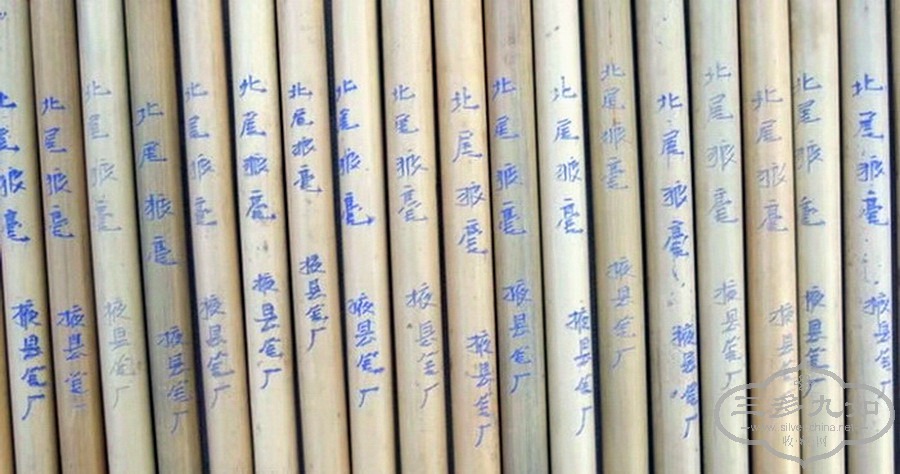 北尾狼毫 掖县笔厂
北尾狼毫 掖县笔厂
北尾狼毫 掖县笔厂
北尾狼毫 掖县笔厂
北尾狼毫 掖县笔厂
北尾狼毫 掖县笔厂
北尾狼毫 掖县笔厂
北尾狼毫 掖县笔厂
北尾狼毫 掖县笔厂
北尾狼毫 掖县笔厂
北尾狼毫 掖县笔厂
北尾狼毫 掖县笔厂
北尾狼毫 掖县笔厂
北尾狼毫 掖县笔厂
北尾狼毫 掖县笔厂
北尾狼毫 掖县笔厂
北尾狼毫 掖县笔厂
北尾狼毫 掖县笔厂
三多九如
www.silver-china.net